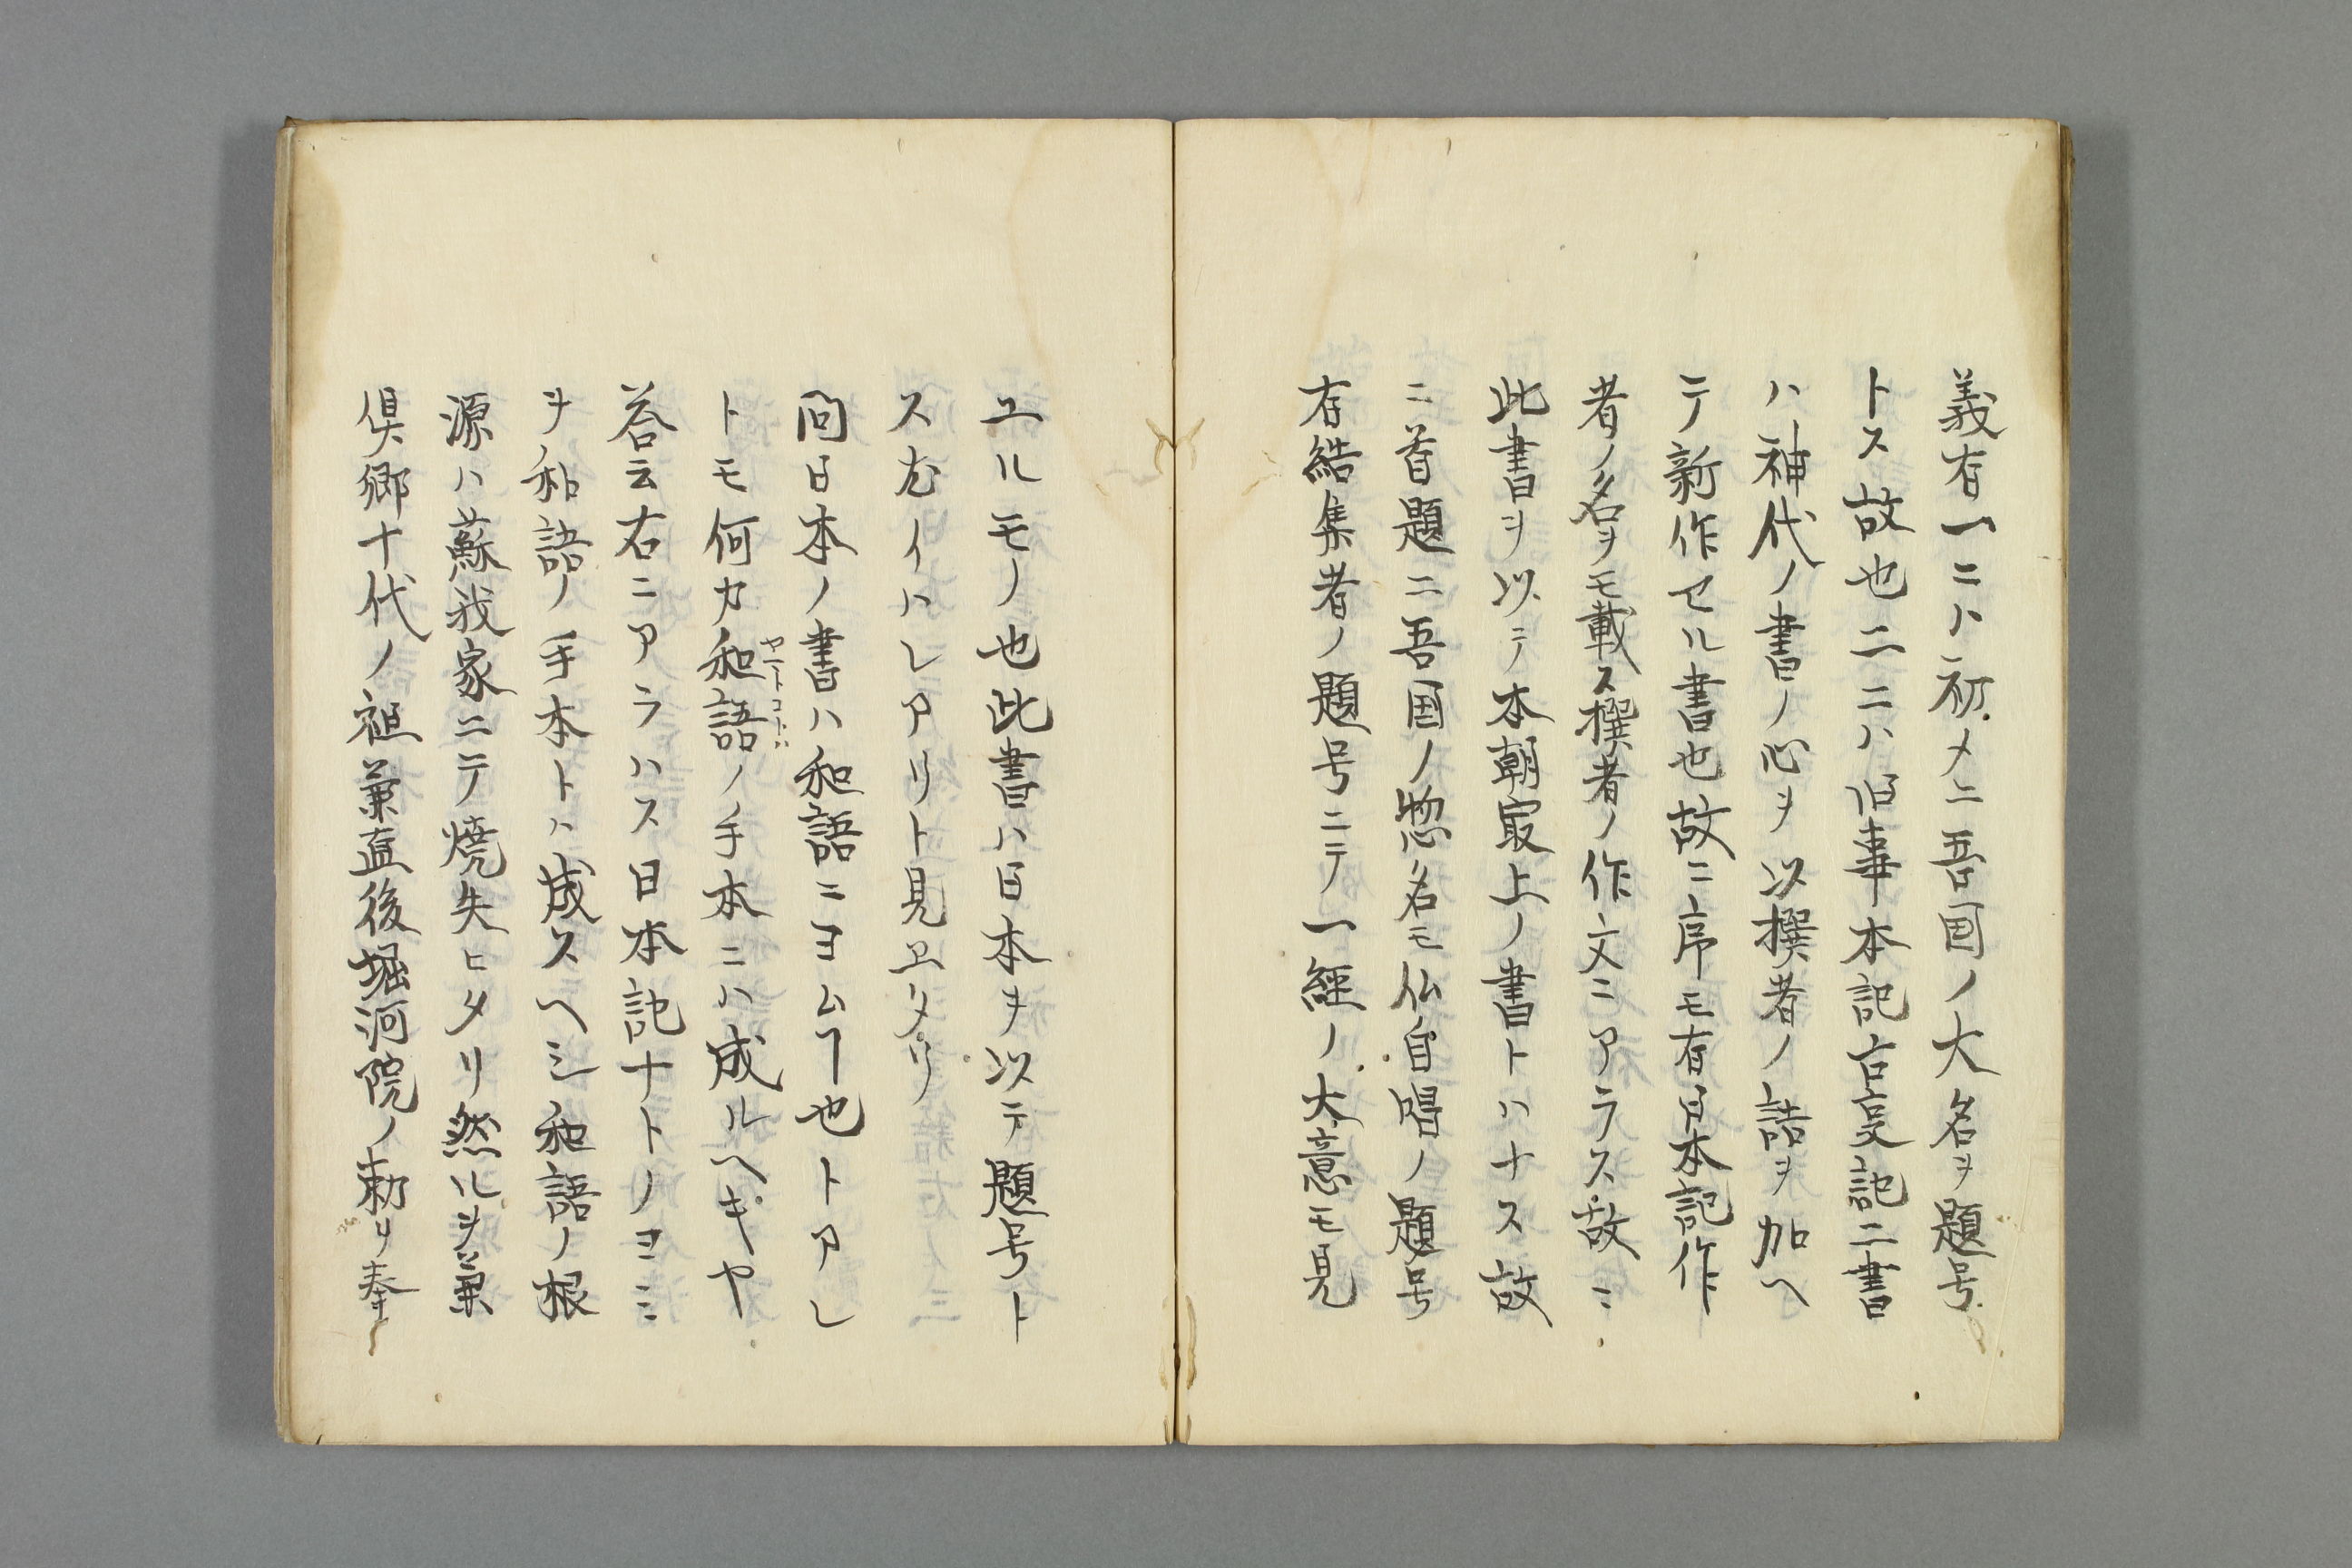 義有一ニハ初メニ吾国ノ大名ヲ題号
トス故也二ニハ旧事本記古夏記二書
ハ神代ノ書ノ心ヲ以撰者ノ語ヲ加ヘ
テ新作セル書也故ニ序モ有日本記作
者ノ名ヲモ載ス撰者ノ作文ニアラス故ニ
此書ヲ以テ本朝最上ノ書トハナス故
ニ首題ニ吾国ノ惣名モ仏自唱ノ題号
有結集者ノ題号ニテ一経ノ大意モ見
ユルモノ也此書ハ日本ヲ以テ題号ト
スイハレアリト見エタリ
問日本ノ書ハ和語ニヨムヿ也トアレ
トモ何カ和語ノ手本ニハ成ルヘキヤ
答云右ニアラハス日本記ナトノヨミ
ヲ和語ノ手本トハ成スヘシ和語ノ根
源ハ蘇我家ニテ焼失ヒタリ然ルヲ兼
倶郷十代ノ祖兼直後堀河院ノ勅リ奉